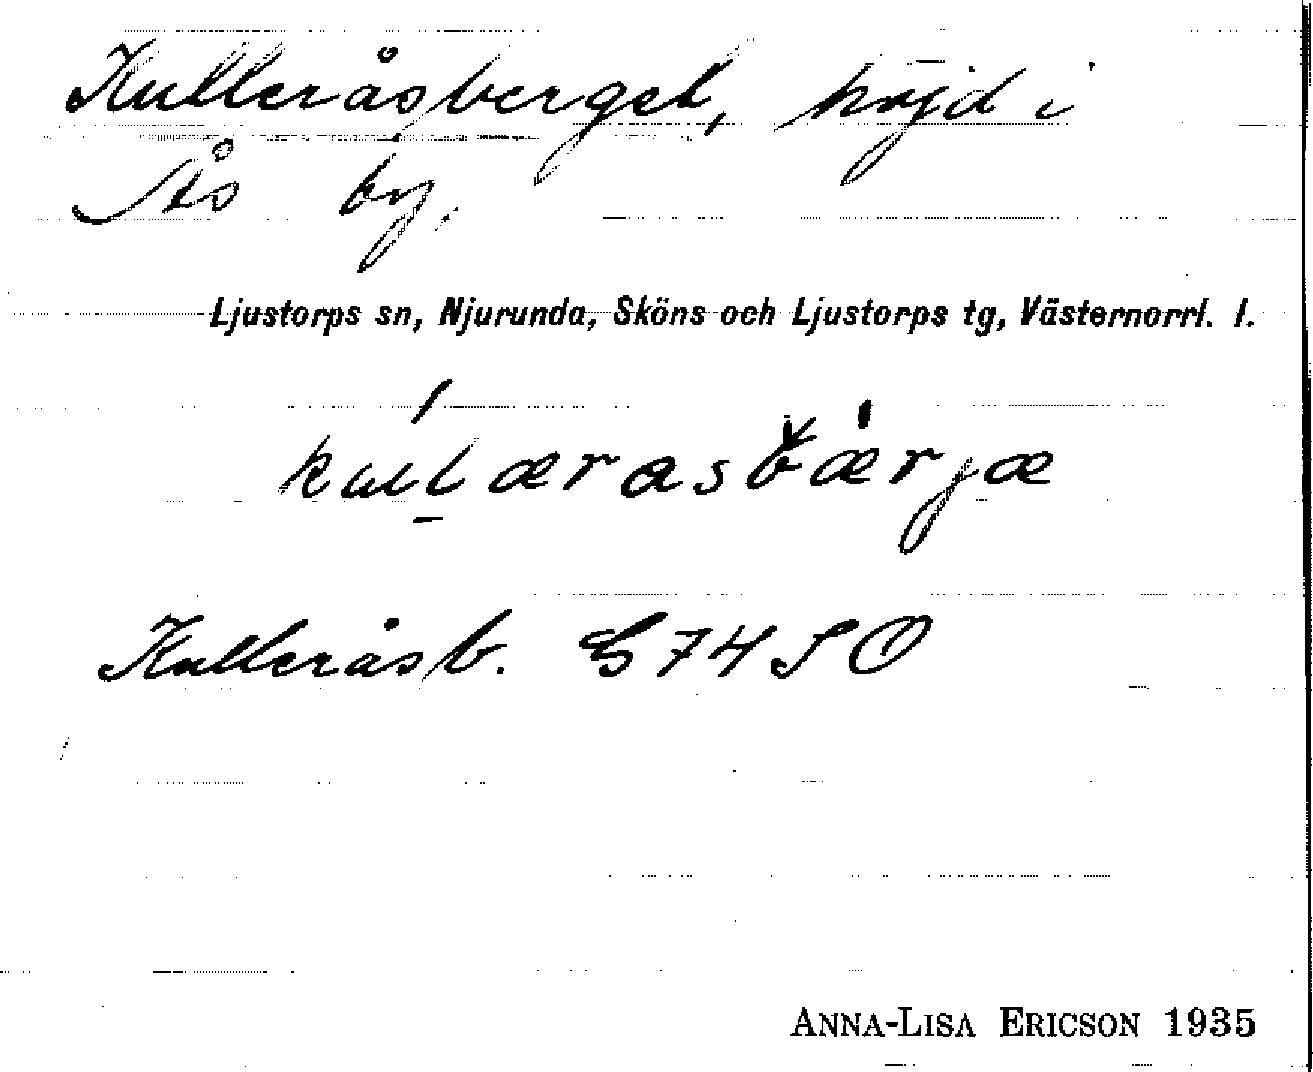 Kulleråsberget, höjd i
Ås by.
Ljustorps sn, Njurunda, Sköns och Ljustorps tg, Västernorrl. l.
kullærasbærjæ
Kulleråsb. G74SO
ANNA-LISA ERICSON 1935